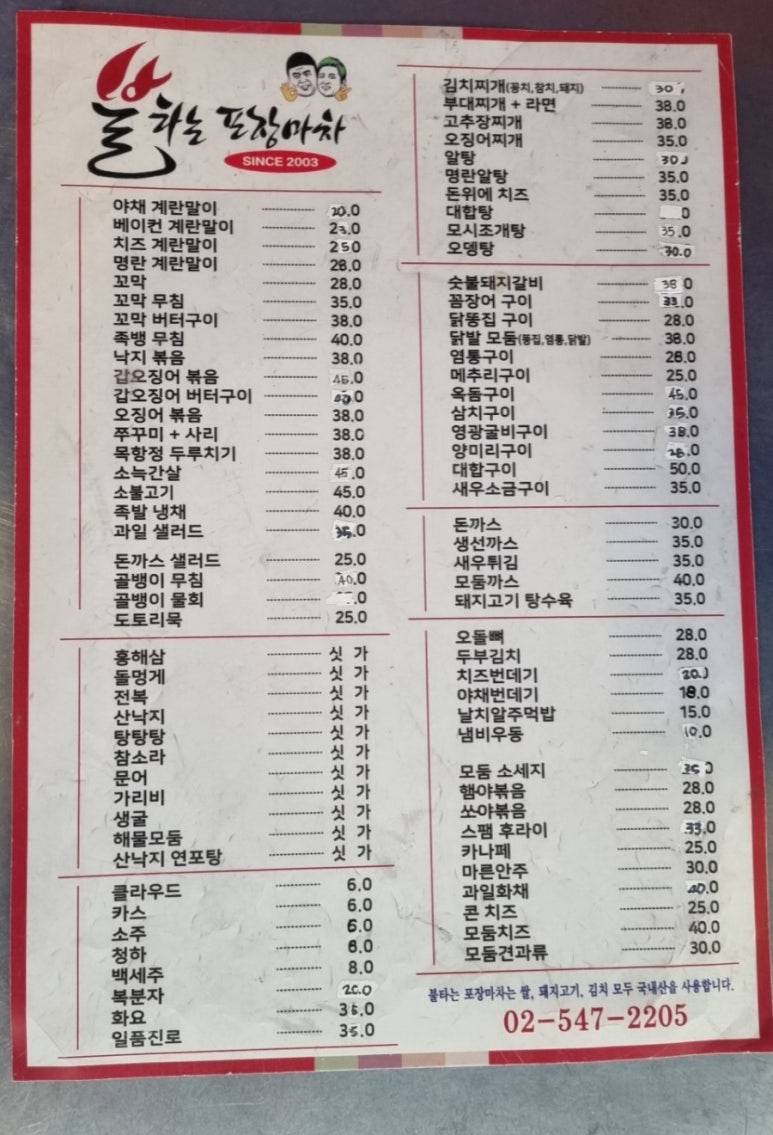 불타는 포장마차
SINCE 2003
야채 계란말이 20.0
베이컨 계란말이 23.0
치즈 계란말이 25.0
명란 계란말이 28.0
꼬막 28.0
꼬막 무침 35.0
꼬막 버터구이 38.0
족뱅 무침 40.0
낙지 볶음 38.0
갑오징어 볶음 45.0
갑오징어 버터구이
오징어 볶음 38.0
쭈꾸미 + 사리 38.0
목항정 두루치기 38.0
소늑간살 45.0
소불고기 45.0
족발 냉채 40.0
과일 샐러드 35.0
돈까스 샐러드 25.0
골뱅이 무침 40.0
골뱅이 물회
도토리묵 25.0
홍해삼 싯 가
돌멍게 싯 가
전복 싯 가
산낙지 싯 가
탕탕탕 싯 가
참소라 싯 가
문어 싯 가
가리비 싯 가
생굴 싯 가
해물모둠 싯 가
산낙지 연포탕 싯 가
클라우드 6.0
카스 6.0
소주 6.0
청하
백세주 8.0
복분자 20.0
화요 35.0
일품진로 35.0
김치찌개(꽁치,참치,돼지)
부대찌개 + 라면 38.0
고추장찌개 38.0
오징어찌개 35.0
알탕
명란알탕 35.0
돈위에 치즈 35.0
대합탕
모시조개탕 35.0
오뎅탕 30.0
숯불돼지갈비 38.0
꼼장어 구이 33.0
닭똥집 구이 28.0
닭발 모둠(똥집,염통,닭발) 38.0
염통구이 28.0
메추리구이 25.0
옥돔구이 45.0
삼치구이 35.0
영광굴비구이 38.0
양미리구이
대합구이 50.0
새우소금구이 35.0
돈까스 30.0
생선까스 35.0
새우튀김 35.0
모둠까스 40.0
돼지고기 탕수육 35.0
오돌뼈 28.0
두부김치 28.0
치즈번데기
야채번데기 18.0
날치알주먹밥 15.0
냄비우동 10.0
모둠 소세지 35.0
햄야볶음 28.0
쏘야볶음 28.0
스팸 후라이 33.0
카나페 25.0
마른안주 30.0
과일화채 40.0
콘 치즈 25.0
모둠치즈 40.0
모둠견과류 30.0
불타는 포장마차는 쌀, 돼지고기, 김치 모두 국내산을 사용합니다.
02-547-2205